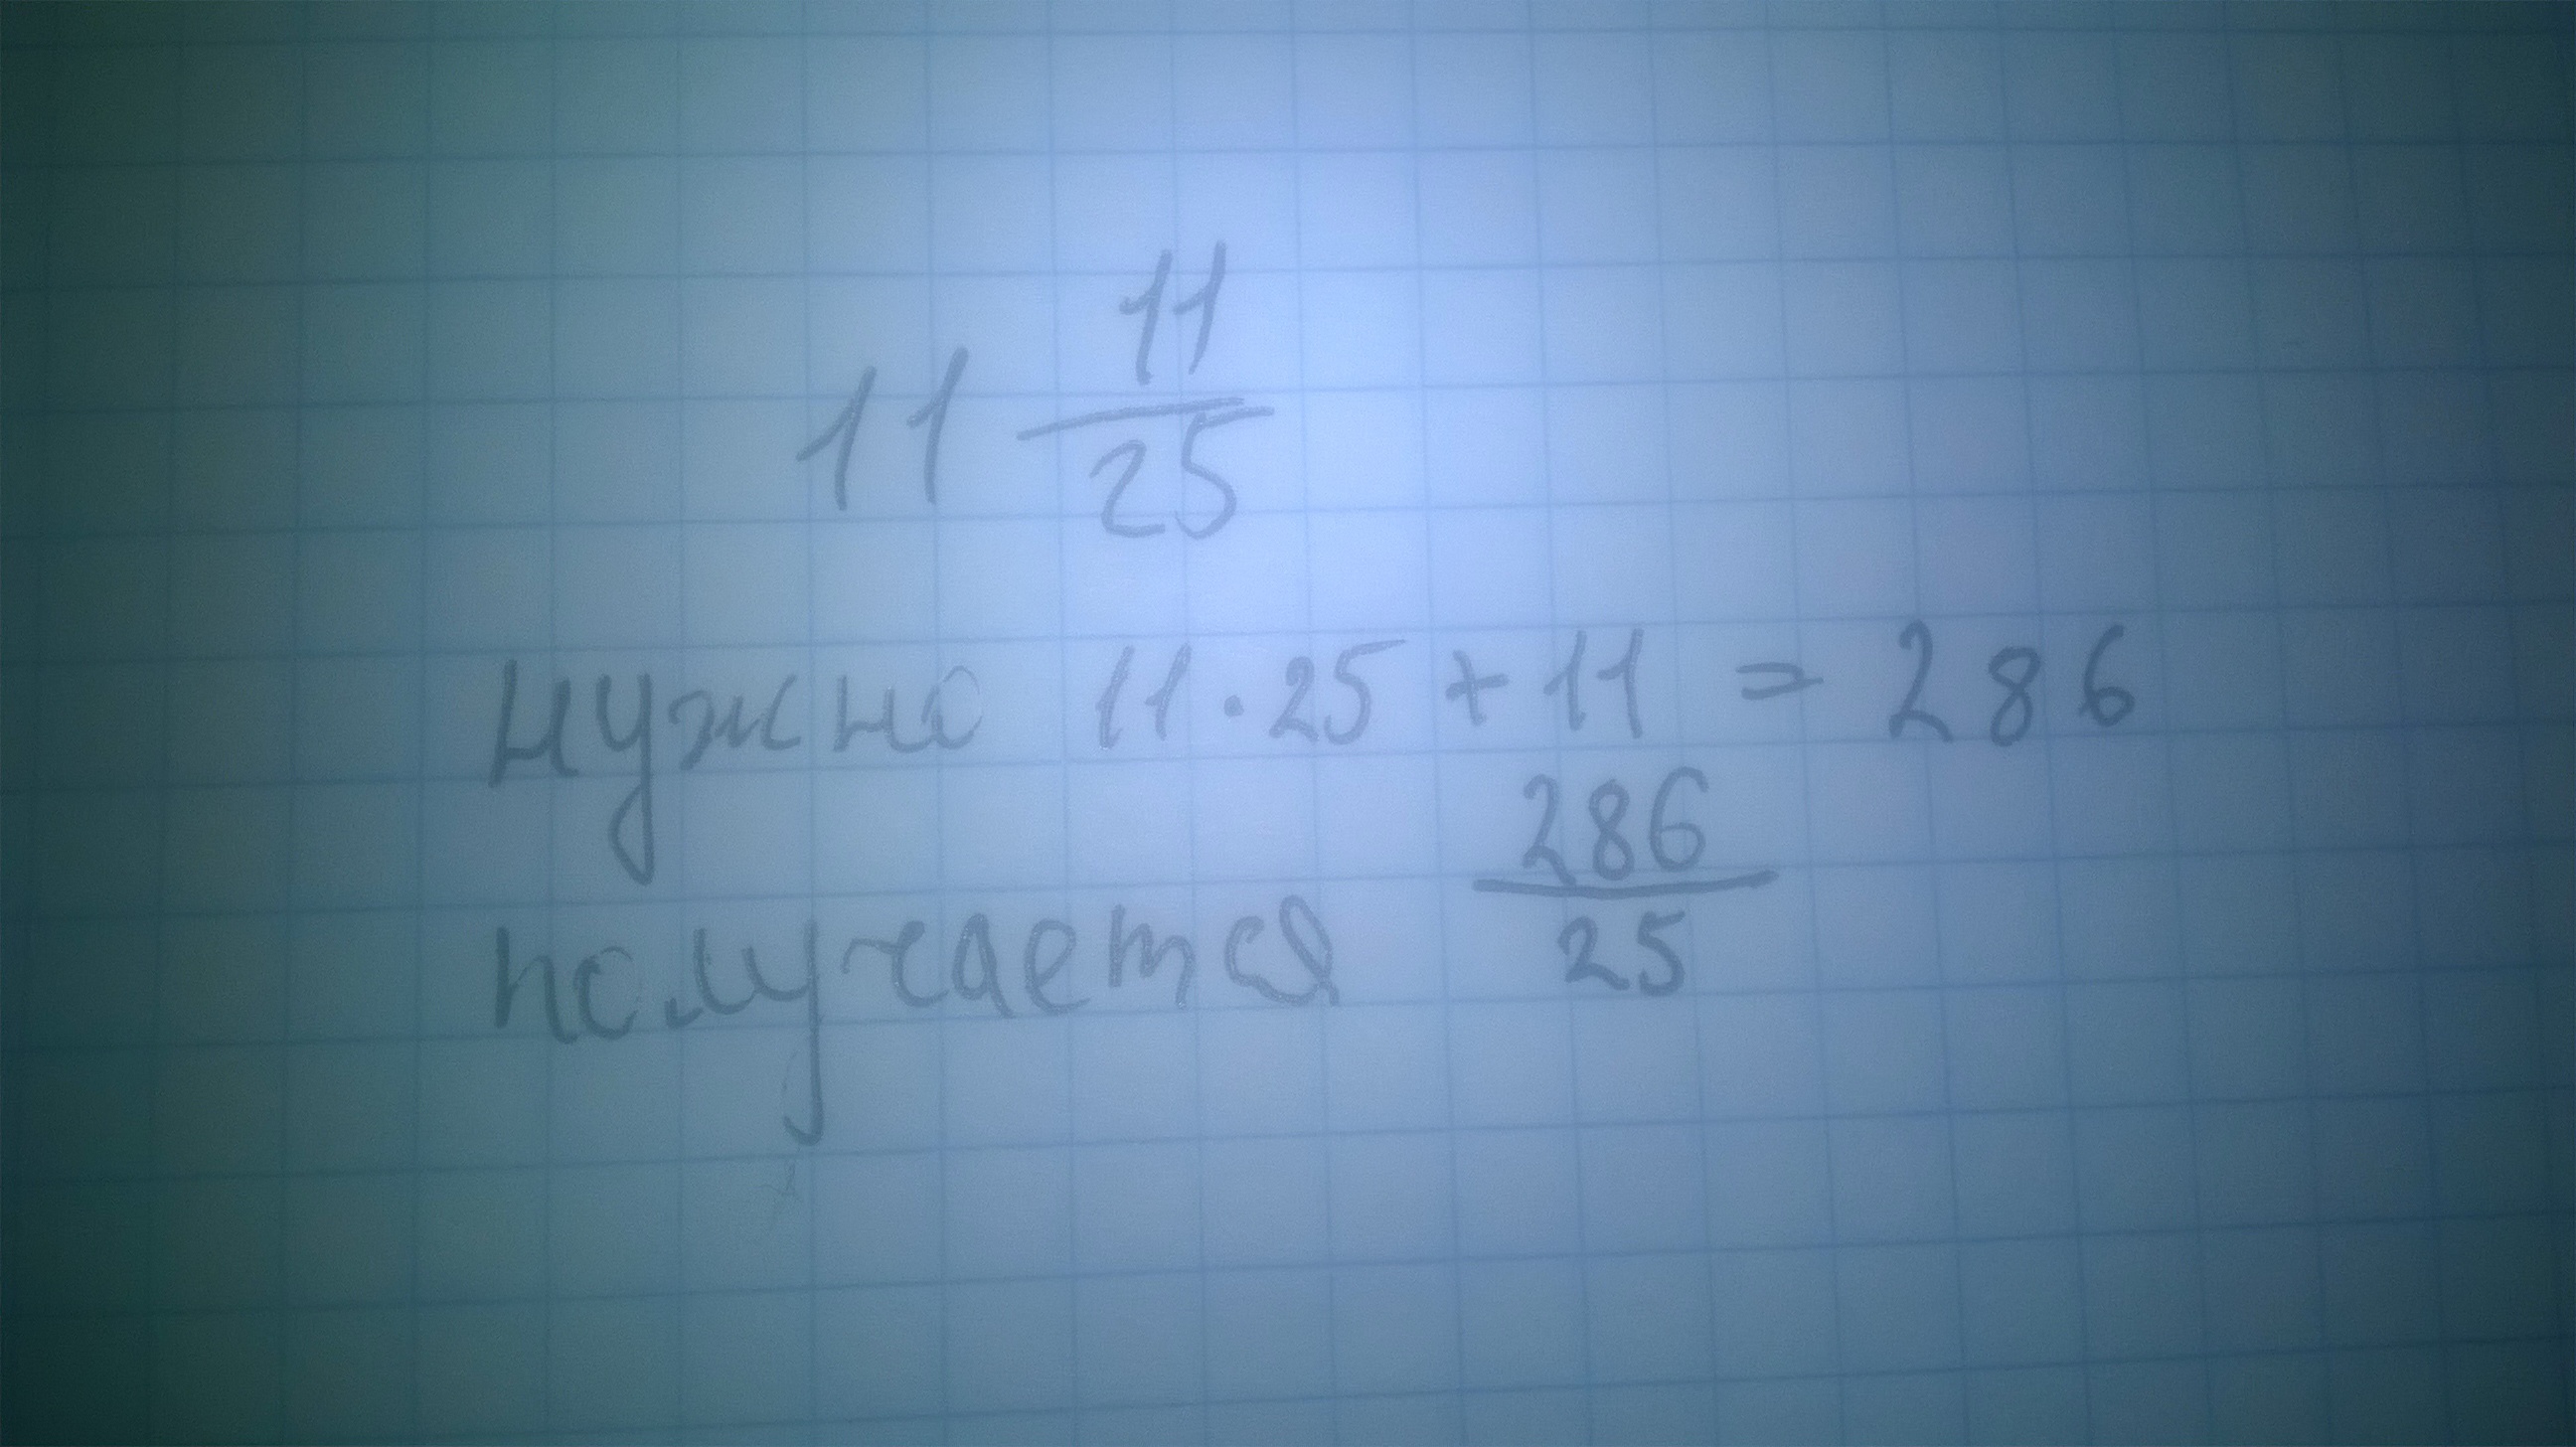 11 11/25
нужно 11·25 + 11 = 286
получается 286/25